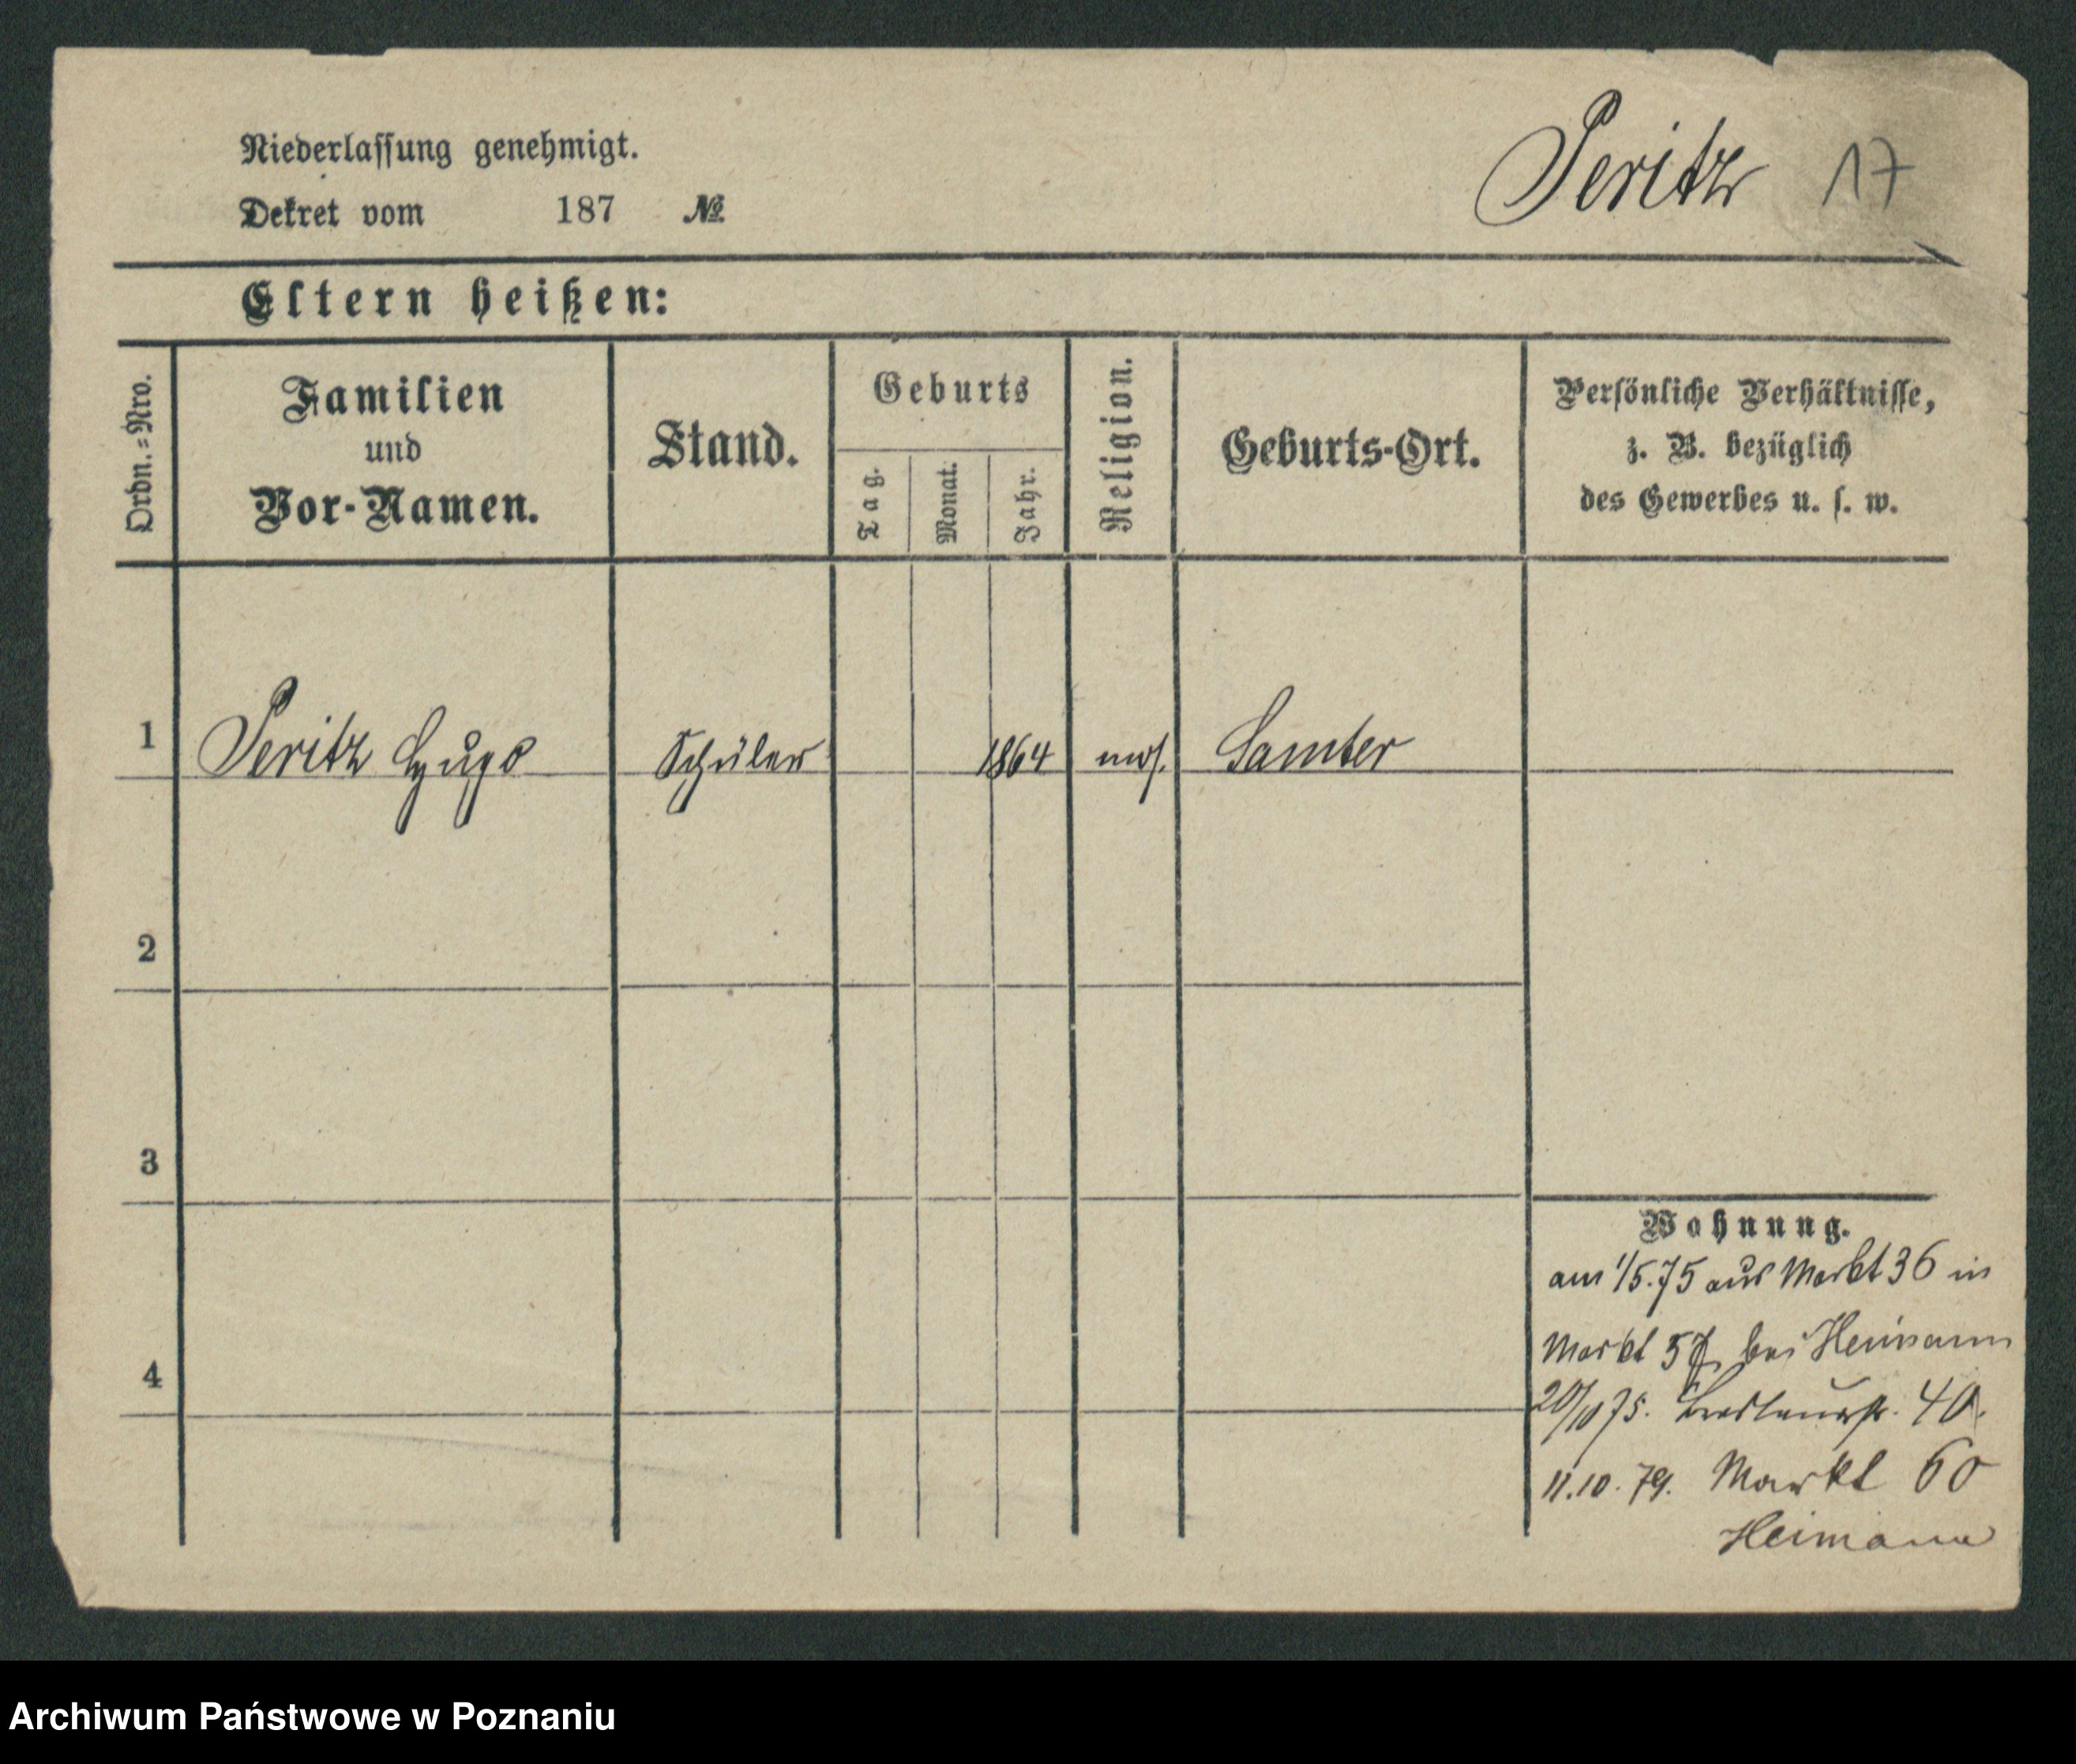 Niederlassung genehmigt.
Dekret vom 187 №
Peritz 17
Eltern heißen:
Ordn.=Nro.
Familien
und
Vor-Namen.
Stand.
Geburts
Tag.
Monat.
Jahr.
Religion.
Geburts-Ort.
Persönliche Verhältnisse,
z. B. bezüglich
des Gewerbes u. s. w.
1 Peritz Hugo Schüler 1864 mos. Samter
2
3
4
Wohnung.
am 1/5.75 aus Markt 36 in
Markt 57 bei Heimann
20/10 75. Breslauerstr. 40.
11.10.79. Markt 60
Heimann
Archiwum Państwowe w Poznaniu